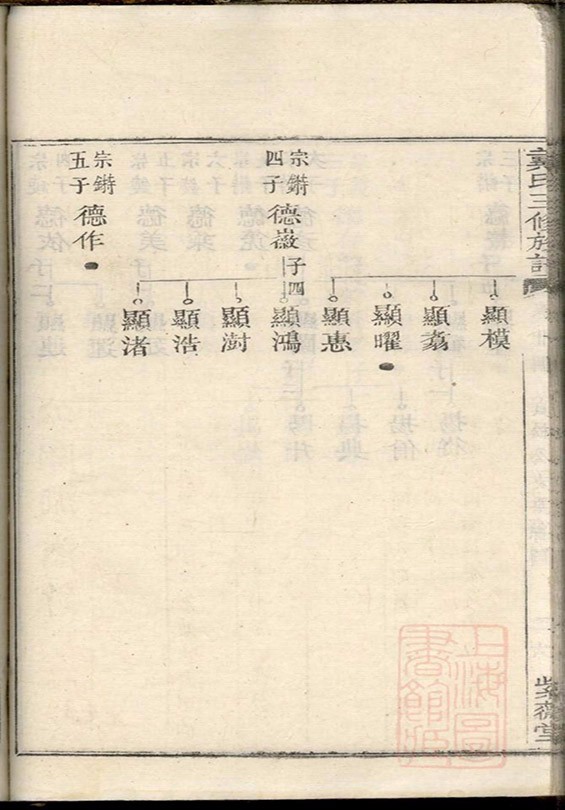 氏三修族譜
顯模
顯翥
顯曜
顯惠
宗鏘四子 德嶶 子四
顯鴻
顯澍
顯浩
顯渚
宗鏘五子 德作
堂
上海圖書館藏